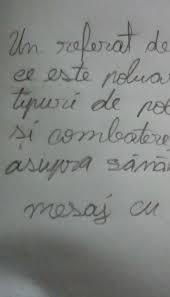 Un referat de
ce este polua
tipuri de pol
și combatere
asupra sănă
mesaj cu